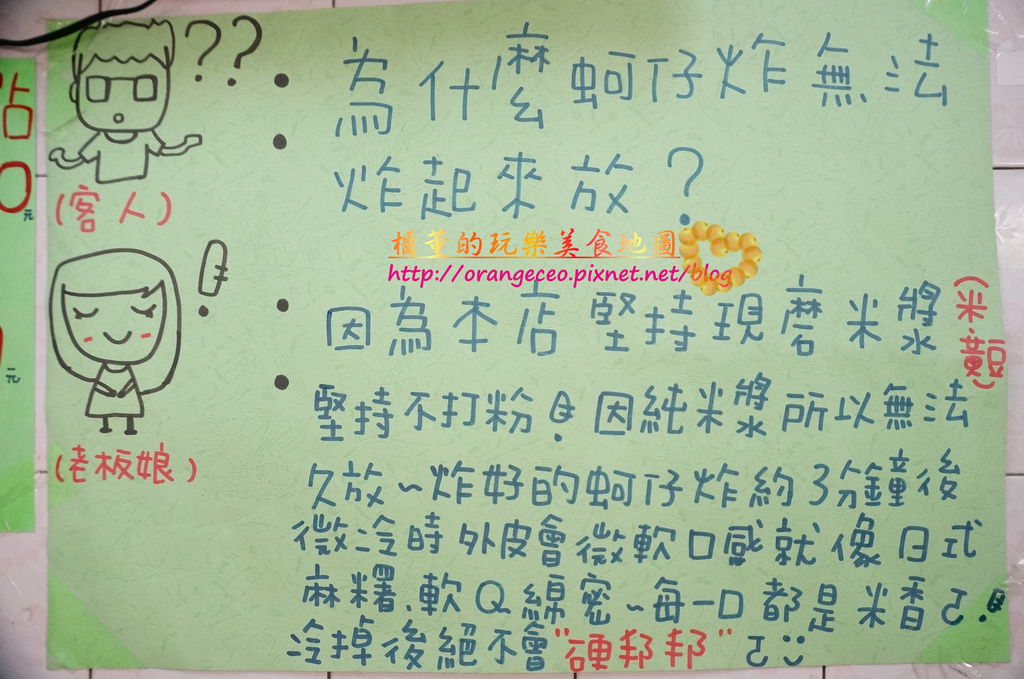 ??
(客人)
為什麼蚵仔炸無法
炸起來放?
橘董的玩樂美食地圖
http://orangeceo.pixnet.net/blog
(老板娘)
因為本店堅持現磨米漿
(米、黃豆)
堅持不打粉!因純米漿所以無法
久放~炸好的蚵仔炸約3分鐘後
微冷時外皮會微軟口感就像日式
麻糬、軟Q綿密~每一口都是米香ㄛ!
冷掉後絕不會"硬邦邦"ㄛ
元
元